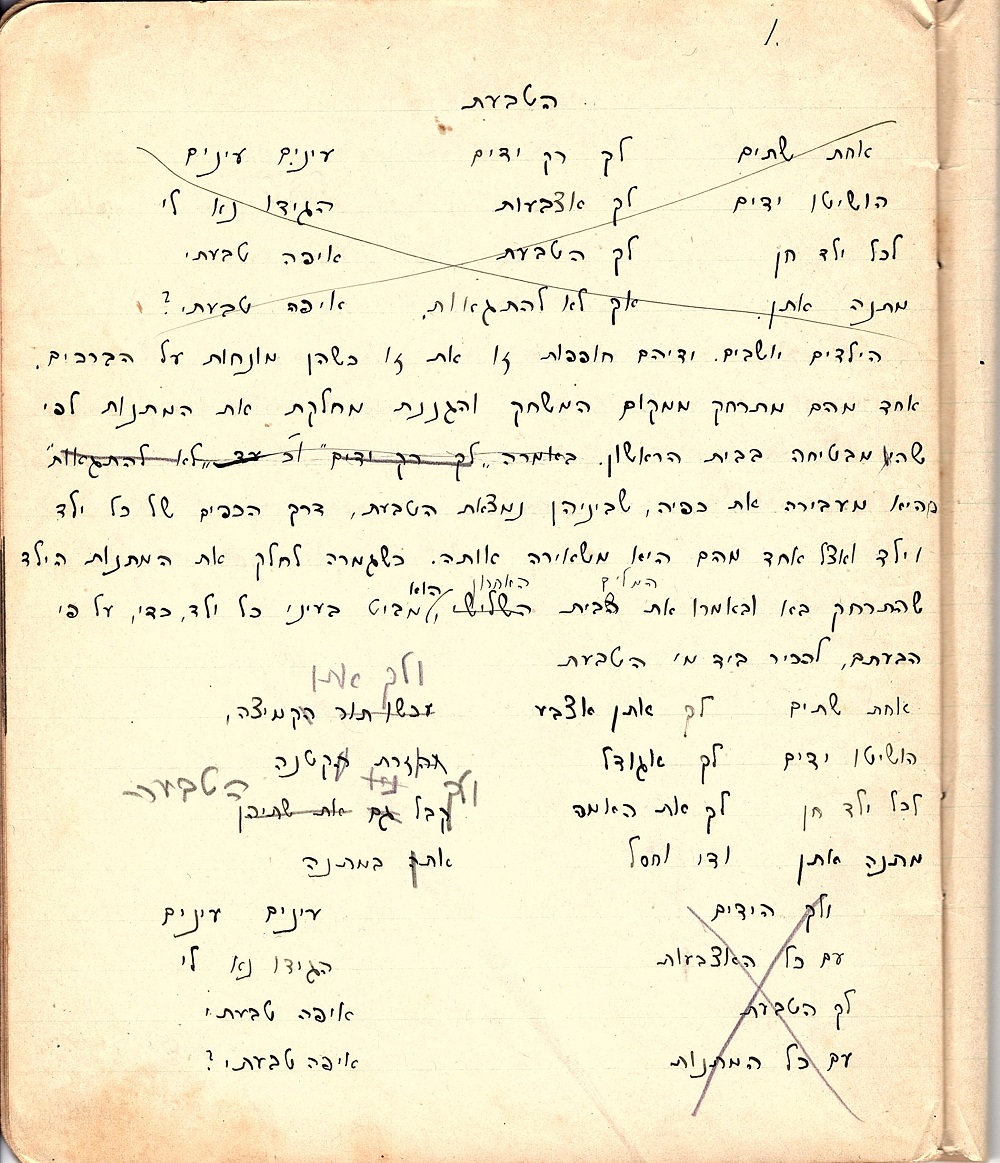 1.
הטבעת
אחת שתים לך רק ידים עינים עינים
הושיטו ידים לך אצבעות הגידו נא לי
לכל ילד חן לך הטבעת איפה טבעתי
מתנה אתן. אך לא להתגאות. איפה טבעתי?
הילדים יושבים. ידיהם חופפות זו את זו כשהן מונחות על הברכים.
אחד מהם מתרחק ממקום המשחק והגננת מחלקת את המתנות לפי
שהיא מבטיחה בבית הראשון. באמרה „לך רק ידים" עד „לא להתגאות"
והיא מעבירה את כפיה, שביניהן נמצאת הטבעת, דרך הכפים של כל ילד
וילד ואצל אחד מהם היא משאירה אותה. כשגמרה לחלק את המתנות הילד
המלים האחרון הוא
שהתרחק בא ובאמרו את הבית השלישי, מביט בעיני כל ילד, כדי, על פי
הבעתם, להכיר ביד מי הטבעת
ולך אתן
אחת שתים לך אתן אצבע עכשו תור הקמיצה,
הושיטו ידים לך אגודל קטנה
ולך הטבעת
לכל ילד חן לך את האמה קבל גם את שתיהן
מתנה אתן ודו וחסל אתן במתנה
ולך הידים עינים עינים
עם כל האצבעות הגידו נא לי
לך הטבעת איפה טבעתי
עם כל המתנות איפה טבעתי?